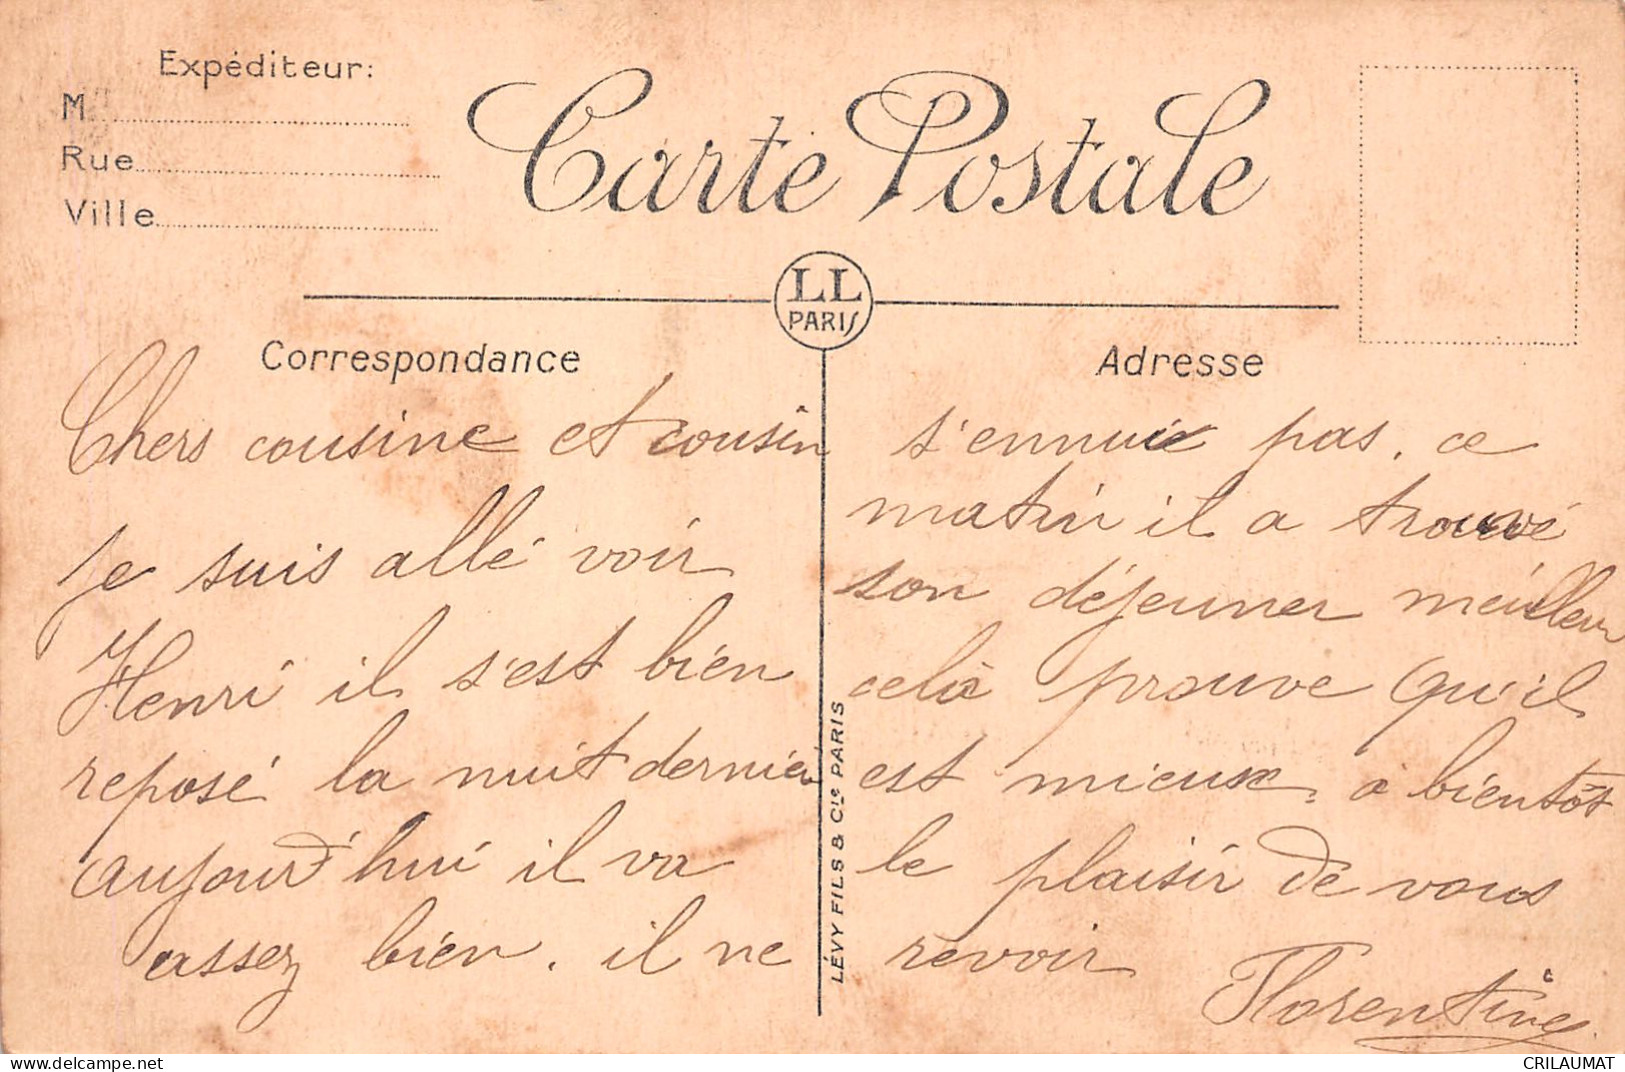 Expéditeur:
M
Rue
Ville
Carte Postale
LL
PARIS
Correspondance
Adresse
Chers cousine et cousin
je suis allé voir
Henri il s'est bien
reposé la nuit dernière
aujourd'hui il va
assez bien. il ne
LÉVY FILS & Cie PARIS
s'ennuie pas. ce
matin il a trouvé
son déjeuner meilleur
celà prouve qu'il
est mieux. à bientôt
le plaisir de vous
revoir
Florentine
CRILAUMAT